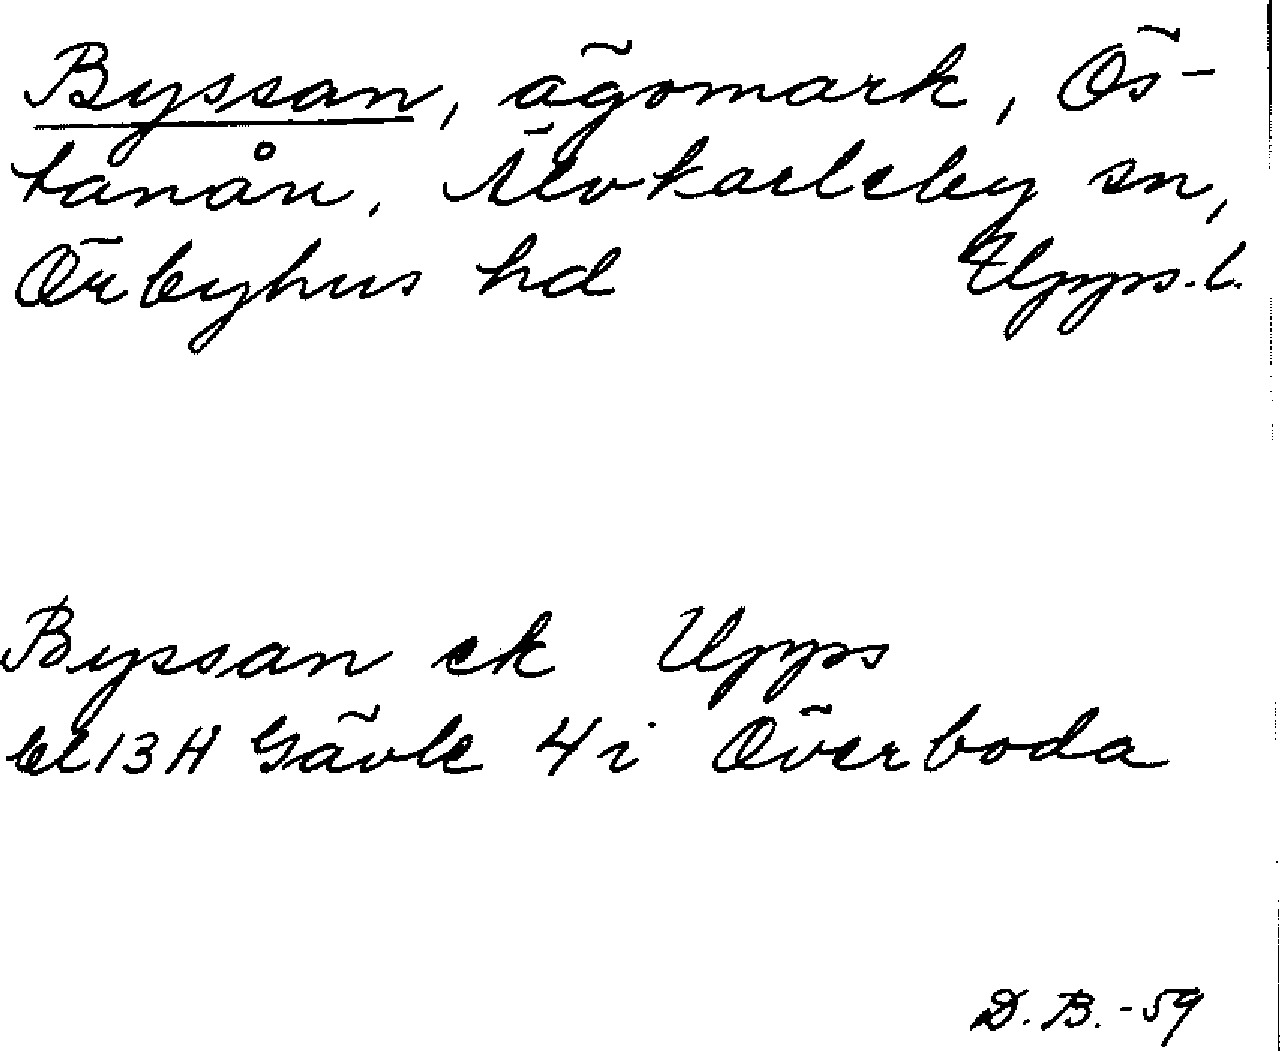 Byssan, ägomark, Ös-
tanån, Älvkarleby sn,
Örbyhus hd Upps.l.
Byssan ek Upps
bl 13 H Gävle 4 i Överboda
D.B.-59